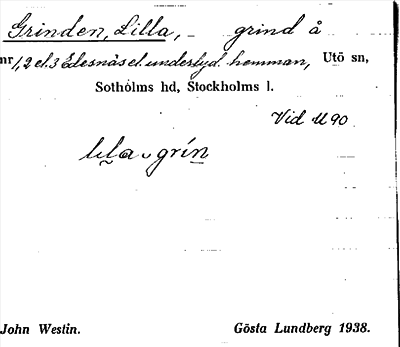 Grinden, Lilla, grind å
nr 1, 2 el. 3 Edesnäs el. underlyd. hemman, Utö sn,
Sotholms hd, Stockholms l.
Vid U 90
lila grín
John Westin. Gösta Lundberg 1938.